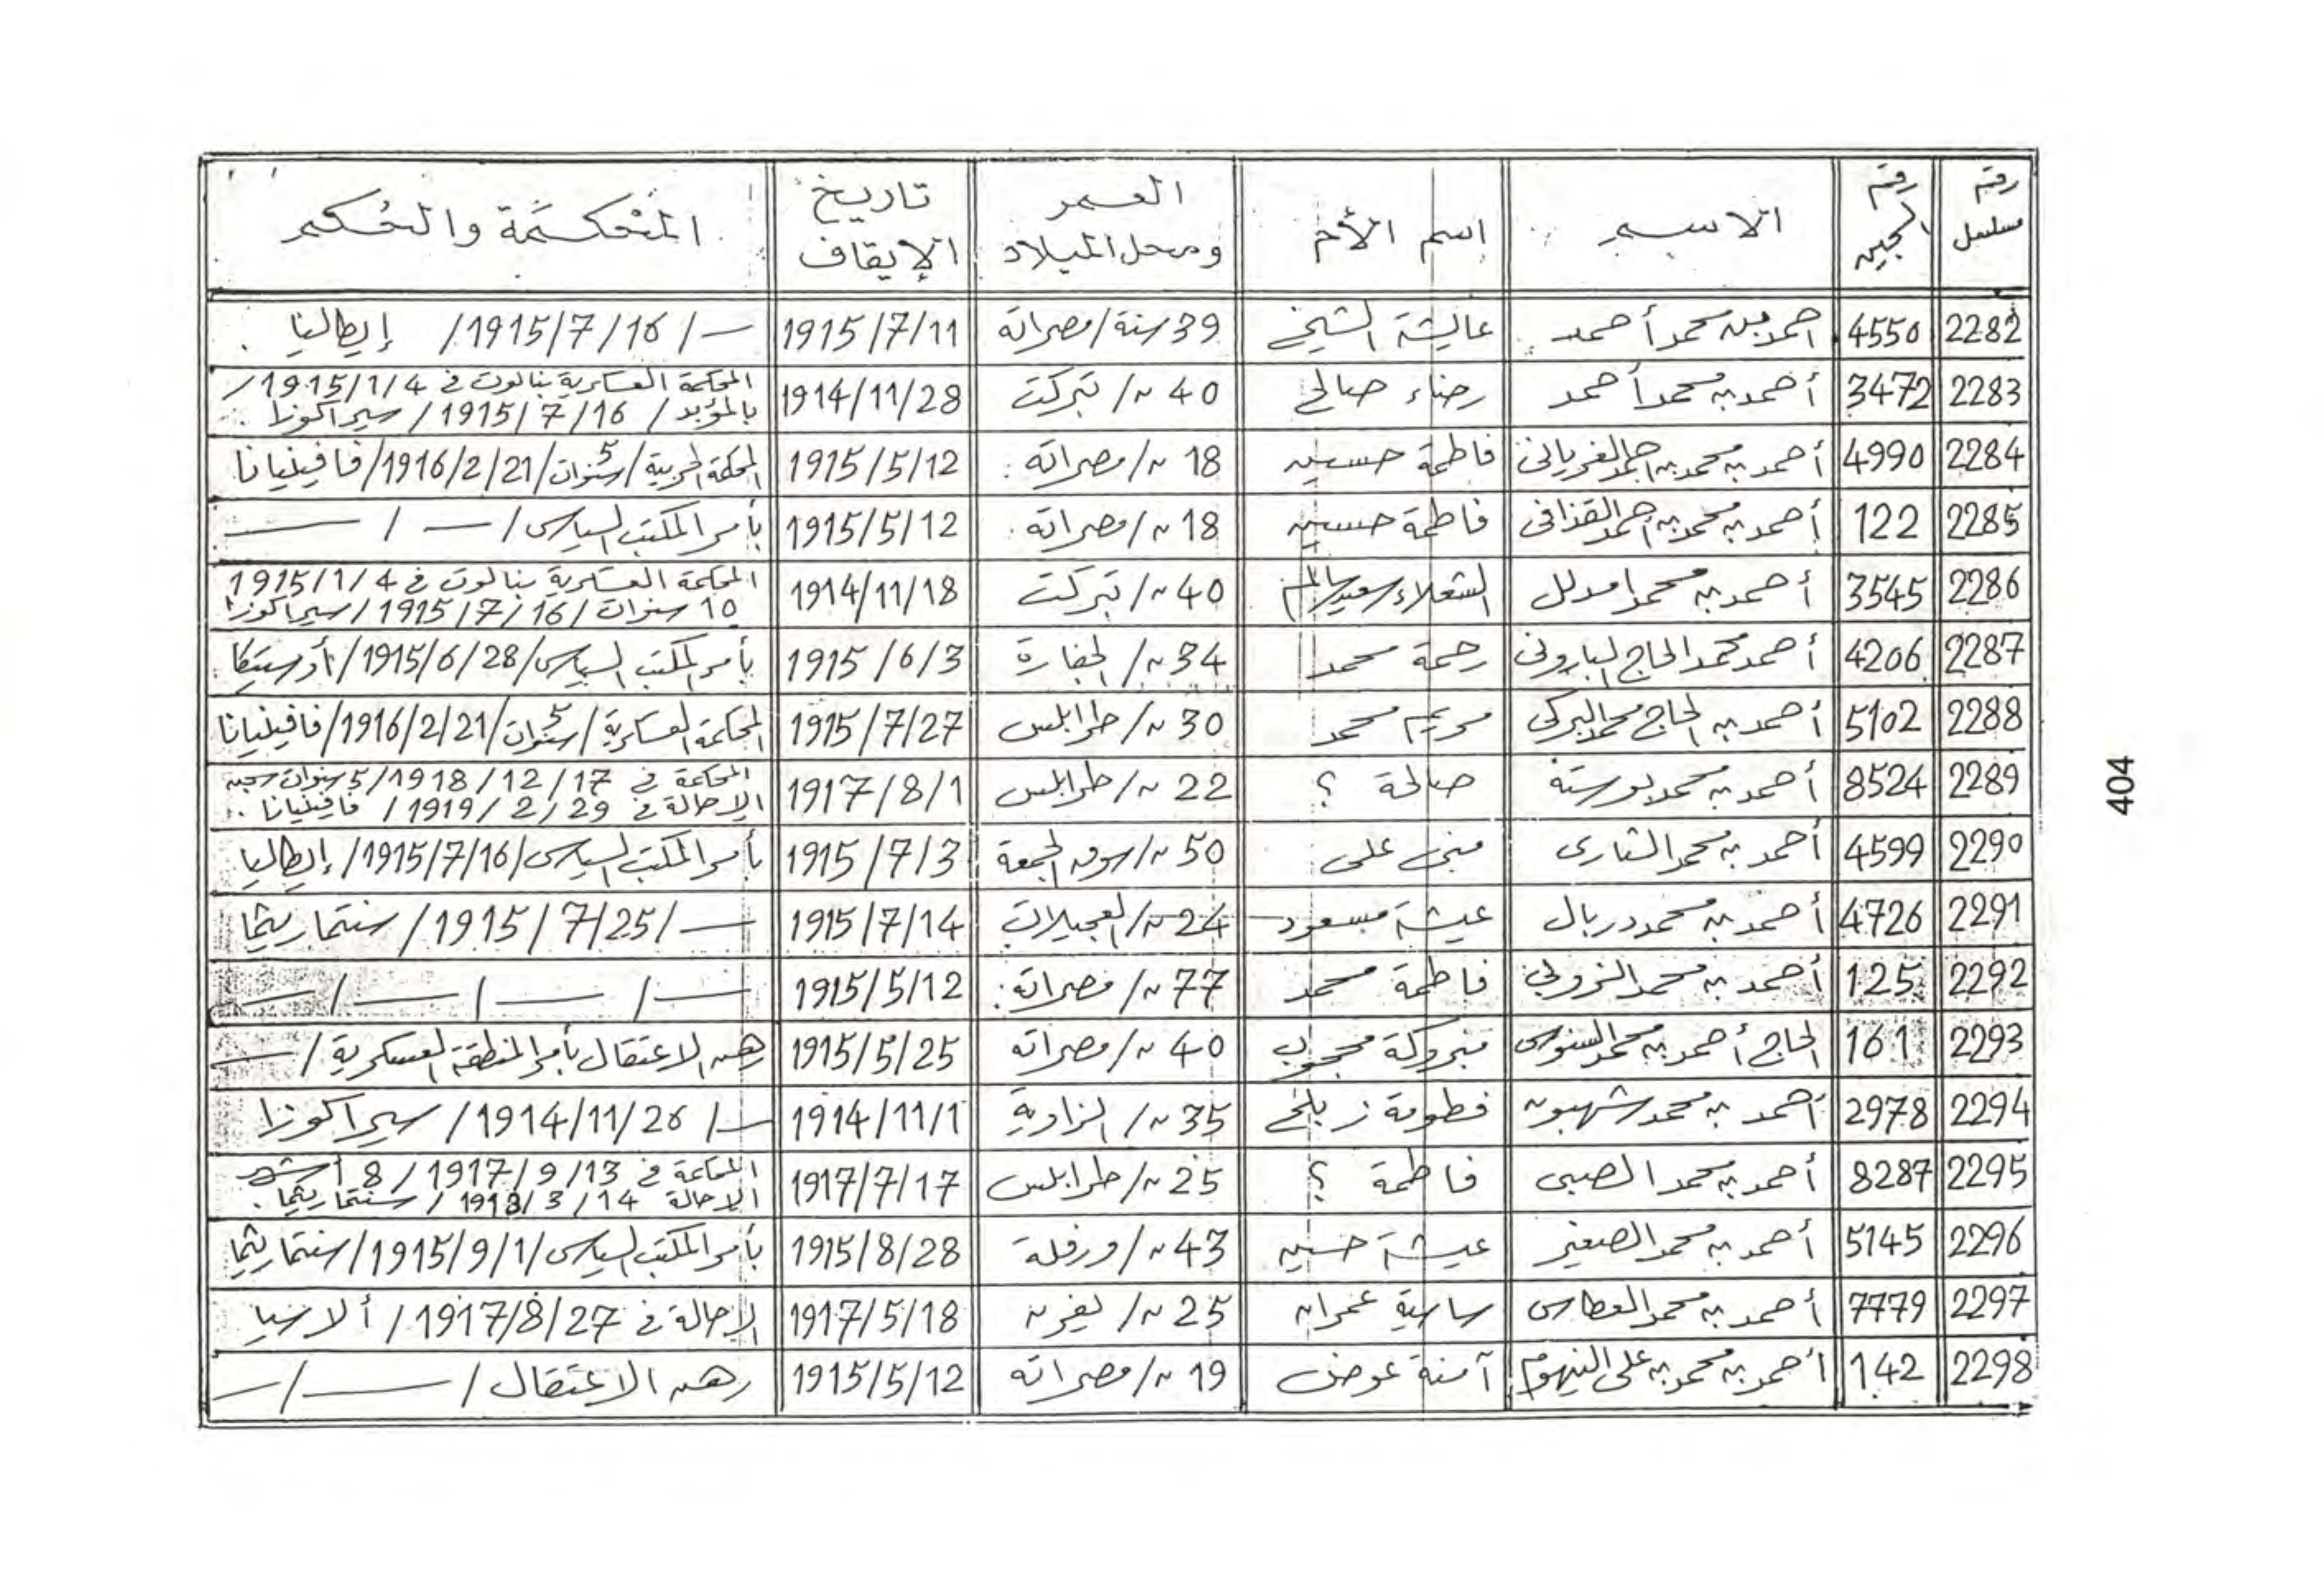 رقم مسلسل | رقم السجين | الاسم | اسم الأم | العمر ومحل الميلاد | تاريخ الإيقاف | المحكمة والحكم
2282 | 4550 | احمد بن محمد أحمد | عائشة الشيخ | 39 سنة/مصراته | 1915/7/11 | — / 1915/7/16 / إيطاليا
2283 | 3472 | أحمد بن محمد أحمد | رضاء صالح | 40 ~/ تبركت | 1914/11/28 | المحكمة العسكرية بنالوت في 1915/1/4 /
بالمؤبد / 1915/7/16 / سيراكوزا
2284 | 4990 | أحمد بن محمد بن احمد الغرياني | فاطمة حسين | 18 ~/مصراته | 1915/5/12 | المحكمة الحربية/5 سنوات/1916/2/21/فافينيانا
2285 | 122 | أحمد بن محمد بن احمد القذافى | فاطمة حسين | 18 ~/مصراته | 1915/5/12 | بأمر المكتب السياسى/ — / —
2286 | 3545 | أحمد بن محمد امدلل | الشعلاء سعيد سالم | 40 ~/ تبركت | 1914/11/18 | المحكمة العسكرية بنالوت في 1915/1/4
10 سنوات / 1915/7/16 / سيراكوزا
2287 | 4206 | أحمد محمد الحاج البارونى | رحمة محمد | 34 ~/ الجفارة | 1915/6/3 | بأمر المكتب السياسى/1915/6/28/أوستيكا
2288 | 5102 | أحمد بن الحاج محمد البركى | مريم محمد | 30 ~/ طرابلس | 1915/7/27 | المحكمة العسكرية/5 سنوات/1916/2/21/فافينيانا
2289 | 8524 | أحمد بن محمد بوستة | صالحة ؟ | 22 ~/ طرابلس | 1917/8/1 | المحكمة في 1918/12/17/5 سنوات سجن
الإحالة في 1919/2/29 / فافينيانا
2290 | 4599 | أحمد بن محمد الشارى | منى على | 50 ~/سوق الجمعة | 1915/7/3 | بأمر المكتب السياسى/1915/7/16/إيطاليا
2291 | 4726 | أحمد بن محمد دربال | عيشة مسعود | 24 ~/العجيلات | 1915/7/14 | — /1915/7/25/ سنتماريثما
2292 | 125 | أحمد بن محمد الزوبى | فاطمة محمد | 77 ~/ مصراته | 1915/5/12 | — / — / — / —
2293 | 161 | الحاج أحمد بن محمد السنوسى | مبروكة محجوب | 40 ~/ مصراته | 1915/5/25 | رهن الاعتقال بأمر المنطقة العسكرية / —
2294 | 2978 | أحمد بن محمد شهبون | فطومة زبلح | 35 ~/ الزاوية | 1914/11/1 | — / 1914/11/26 / سيراكوزا
2295 | 8287 | أحمد بن محمد الصبى | فاطمة ؟ | 25 ~/ طرابلس | 1917/7/17 | المحاكمة في 1917/9/13 / 8 أشهر
الإحالة 1918/3/14 / سنتماريثما
2296 | 5145 | أحمد بن محمد الصغير | عيشة حسين | 43 ~/ورفلة | 1915/8/28 | بأمر المكتب السياسى/1915/9/1/سنتماريثما
2297 | 7779 | أحمد بن محمد العطاس | ساسية عمران | 25 ~/ يفرن | 1917/5/18 | الإحالة في 1917/8/27 / ألاسيا
2298 | 142 | أحمد بن محمد بن على النيهوم | آمنة عوض | 19 ~/ مصراته | 1915/5/12 | رهن الاعتقال / — / —
404